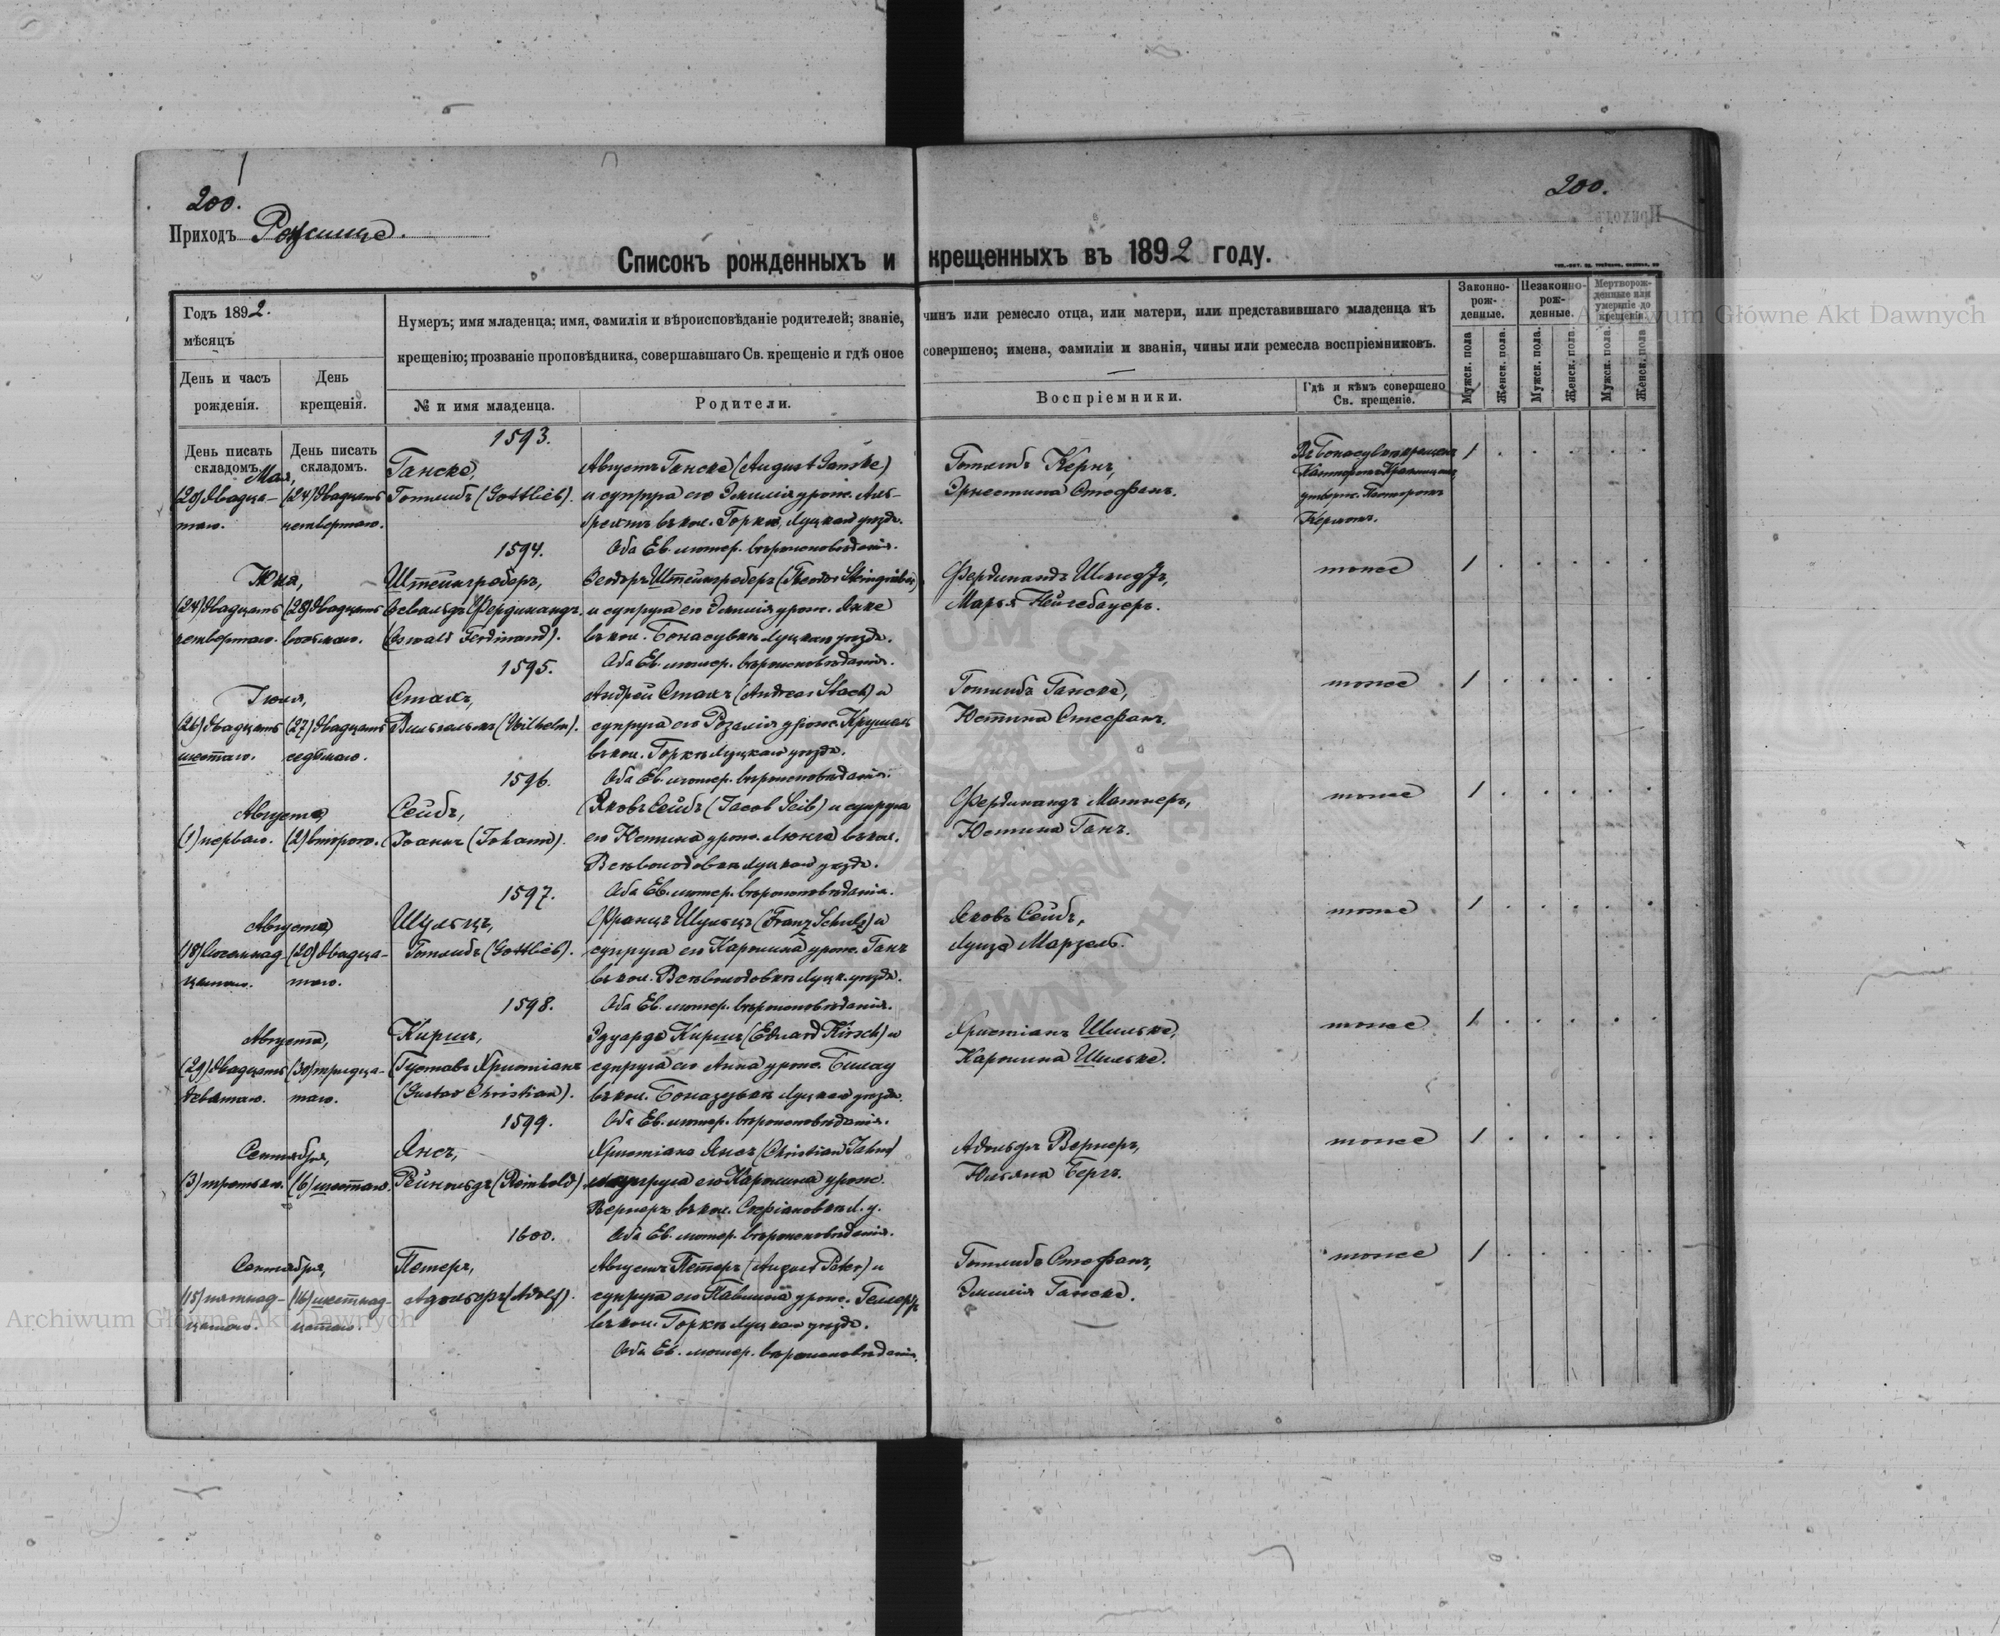 200.
200.
Приходъ Рожище.
Списокъ рожденныхъ и крещенныхъ въ 1892 году.
Годъ 1892.
мѣсяцъ
День и часъ рожденія.
День крещенія.
Нумеръ; имя младенца; имя, фамилія и вѣроисповѣданіе родителей; званіе, чинъ или ремесло отца, или матери, или представившаго младенца къ
крещенію; прозваніе проповѣдника, совершавшаго Св. крещеніе и гдѣ оное совершено; имена, фамиліи и званія, чины или ремесла воспріемниковъ.
№ и имя младенца.
Родители.
Воспріемники.
Гдѣ и кѣмъ совершено Св. крещеніе.
Законно-рожденные.
Незаконно-рожденные.
Мертворожденные или умершіе до крещенія.
Мужск. пола
Женск. пола.
Мужск. пола.
Женск. пола
Мужск. пола.
Женск. пола
День писать складомъ.
День писать складомъ.
1593.
Мая,
(20) двадца-
таго.
(24) двадцать
четвертаго.
Ганске
Готлибъ (Gottlieb).
Августъ Ганске (August Ganske)
и супруга его Эмилія урож. Аль-
брехтъ въ кол. Горка, Луцкаго уѣзда.
Оба Ев. лютер. вѣроисповѣданія.
Готлибъ Кернъ,
Эрнестина Стефанъ.
Пасторомъ
Керномъ.
1
1594.
Іюня,
(24) двадцать
четвертаго.
(28) двадцать
восьмаго.
Штейнгроберъ,
Освальдъ Фердинандъ
(Oswald Ferdinand).
Теодоръ Штейнгроберъ (Theodor Steingräber)
и супруга его Эмилія урож. Янке
въ кол. Бонасувка Луцкаго уѣзда.
Оба Ев. лютер. вѣроисповѣданія.
Фердинандъ Шмидтъ,
Марья Нейгебауеръ.
тоже
1
1595.
Іюля,
(26) двадцать
шестаго.
(27) двадцать
седьмаго.
Стахъ,
Вильгельмъ (Wilhelm).
Андрей Стахъ (Andreas Stach) и
супруга его Розалія урож. Крушель
въ кол. Горкѣ Луцкаго уѣзда.
Оба Ев. лютер. вѣроисповѣданія.
Готлибъ Ганске,
Юстина Стефанъ.
тоже
1
1596.
Августа,
(1) перваго.
(2) втораго.
Сейбъ,
Іоаннъ (Johann).
Яковъ Сейбъ (Jacob Seib) и супруга
его Юстина урож. Люнга въ кол.
Всѣволодовкѣ Луцкаго уѣзда.
Оба Ев. лютер. вѣроисповѣданія.
Фердинандъ Матнеръ,
Юстина Ганъ.
тоже
1
1597.
Августа,
(18) восемнад-
цатаго.
(20) двадца-
таго.
Шульцъ,
Готлибъ (Gottlieb).
Францъ Шульцъ (Franz Schulz) и
супруга его Каролина урож. Ганъ
въ кол. Всѣволодовкѣ Луцк. уѣзда.
Оба Ев. лютер. вѣроисповѣданія.
Яковъ Сейбъ,
Луиза Марзель.
тоже
1
1598.
Августа,
(29) двадцать
девятаго.
(30) тридца-
таго.
Киршъ,
Густавъ Христіанъ
(Gustav Christian).
Эдуардъ Киршъ (Eduard Kirsch) и
супруга его Анна урож. Билау
въ кол. Боназувка Луцкаго уѣзда.
Оба Ев. лютер. вѣроисповѣданія.
Христіанъ Шильке,
Каролина Шильке.
тоже
1
1599.
Сентября,
(3) третьяго.
(6) шестаго.
Янсъ,
Рейнгольдъ (Reinhold)
Христіанъ Янсъ (Christian Jahns)
супруга его Каролина урож.
Вернеръ въ кол. Стефановкѣ Л. у.
Оба Ев. лютер. вѣроисповѣданія.
Адольфъ Вернеръ,
Юльяна Бергъ.
тоже
1
1600.
Сентября,
(15) пятнад-
цатаго.
(16) шестнад-
цатаго.
Петеръ,
Адольфъ (Adolf).
Августъ Петеръ (August Peter) и
супруга его Павлина урож. Геллертъ
въ кол. Горкѣ Луцкаго уѣзда.
Оба Ев. лютер. вѣроисповѣданія.
Готлибъ Стефанъ,
Эмилія Ганске.
тоже
1
Archiwum Główne Akt Dawnych
Archiwum Główne Akt Dawnych